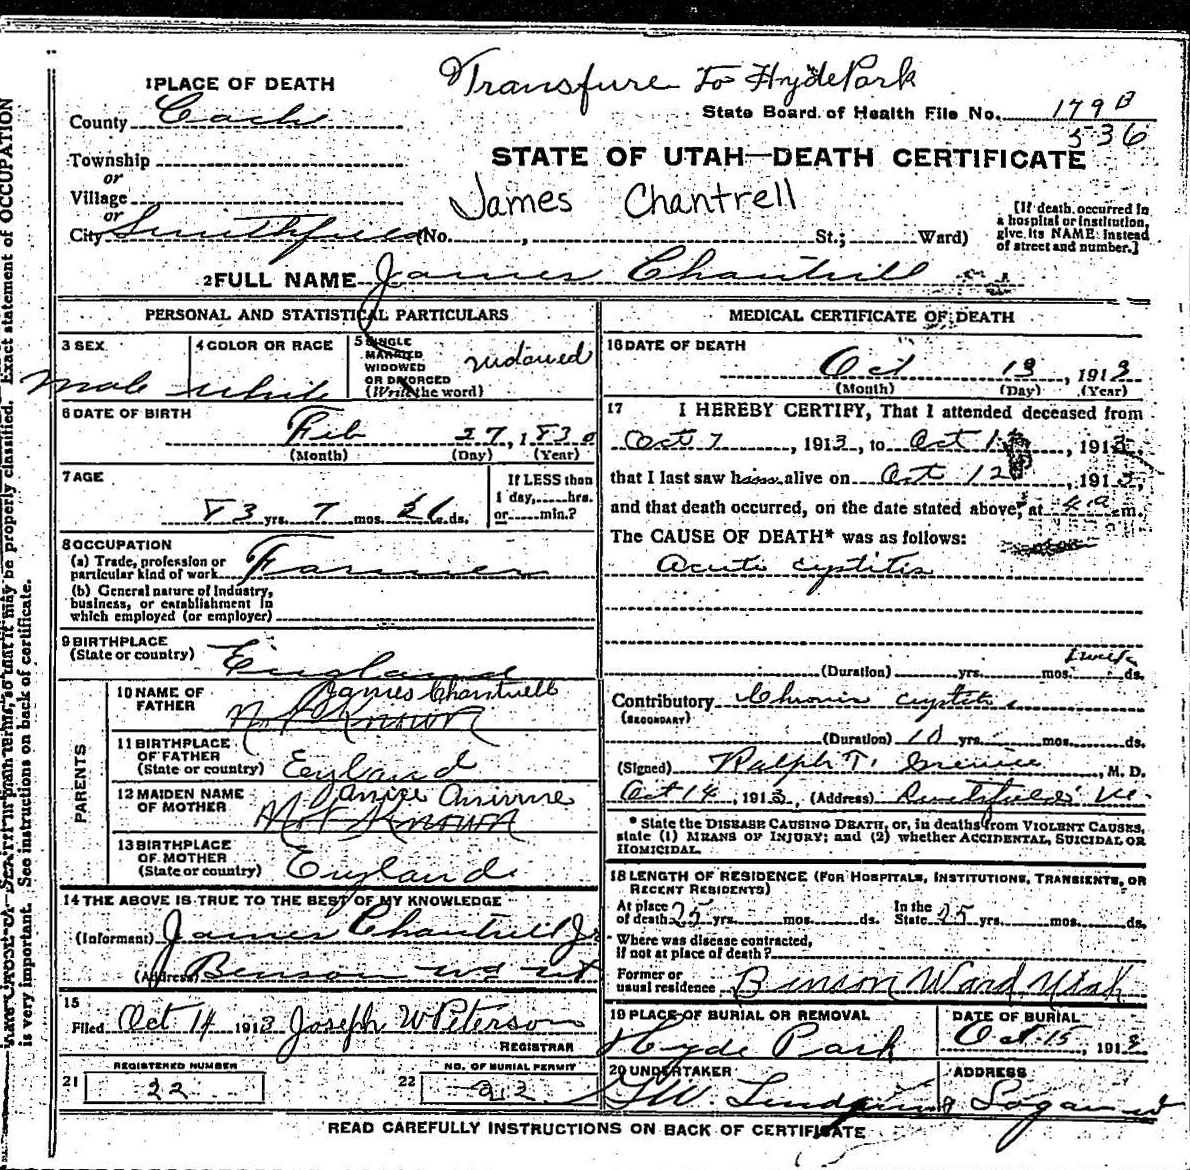 Transfure To Hyde Park
1 PLACE OF DEATH
State Board of Health File No. 179 B
536
County Cache
Township
or
STATE OF UTAH—DEATH CERTIFICATE
Village
or
James Chantrell
City Smithfield (No. , St.; Ward)
[If death occurred in
a hospital or institution,
give its NAME instead
of street and number.]
2 FULL NAME James Chantrill
PERSONAL AND STATISTICAL PARTICULARS
3 SEX
male
4 COLOR OR RACE
white
5 SINGLE
MARRIED
WIDOWED
OR DIVORCED
(Write the word)
widowed
6 DATE OF BIRTH
Feb 27, 1830
(Month) (Day) (Year)
7 AGE
83 yrs. 7 mos. ds.
If LESS than
1 day, hrs.
or min.?
8 OCCUPATION
(a) Trade, profession or
particular kind of work Farmer
(b) General nature of Industry,
business, or establishment in
which employed (or employer)
9 BIRTHPLACE
(State or country) England
PARENTS
10 NAME OF
FATHER
James Chantrell
Not Known
11 BIRTHPLACE
OF FATHER
(State or country) England
12 MAIDEN NAME
OF MOTHER
Not Known
13 BIRTHPLACE
OF MOTHER
(State or country) England
14 THE ABOVE IS TRUE TO THE BEST OF MY KNOWLEDGE
(Informant) James Chantrill Jr
(Address) Benson wd ut
15
Filed Oct 14 1913 Joseph W Peterson
REGISTRAR
21 REGISTERED NUMBER
22
22 NO. OF BURIAL PERMIT
MEDICAL CERTIFICATE OF DEATH
16 DATE OF DEATH
Oct 13, 1913
(Month) (Day) (Year)
17 I HEREBY CERTIFY, That I attended deceased from
Oct 7, 1913, to Oct 1 , 1913,
that I last saw him alive on Oct 12, 1913,
and that death occurred, on the date stated above, at 4 a m.
The CAUSE OF DEATH* was as follows:
Acute cystitis
1 week
(Duration) yrs. mos. ds.
Contributory Chronic cystitis
(SECONDARY)
(Duration) 10 yrs. mos. ds.
(Signed) Ralph T. , M. D.
Oct 14, 1913, (Address)
* State the DISEASE CAUSING DEATH, or, in deaths from VIOLENT CAUSES,
state (1) MEANS OF INJURY; and (2) whether ACCIDENTAL, SUICIDAL OR
HOMICIDAL.
18 LENGTH OF RESIDENCE (FOR HOSPITALS, INSTITUTIONS, TRANSIENTS, OR
RECENT RESIDENTS)
At place
of death 25 yrs. mos. ds.
In the
State 25 yrs. mos. ds.
Where was disease contracted,
if not at place of death?
Former or
usual residence Benson Ward Utah
19 PLACE OF BURIAL OR REMOVAL
Hyde Park
DATE OF BURIAL
Oct 15, 1913
20 UNDERTAKER
ADDRESS
Logan ut
READ CAREFULLY INSTRUCTIONS ON BACK OF CERTIFICATE
may be properly classified. Exact statement of OCCUPATION
is very important. See instructions on back of certificate.